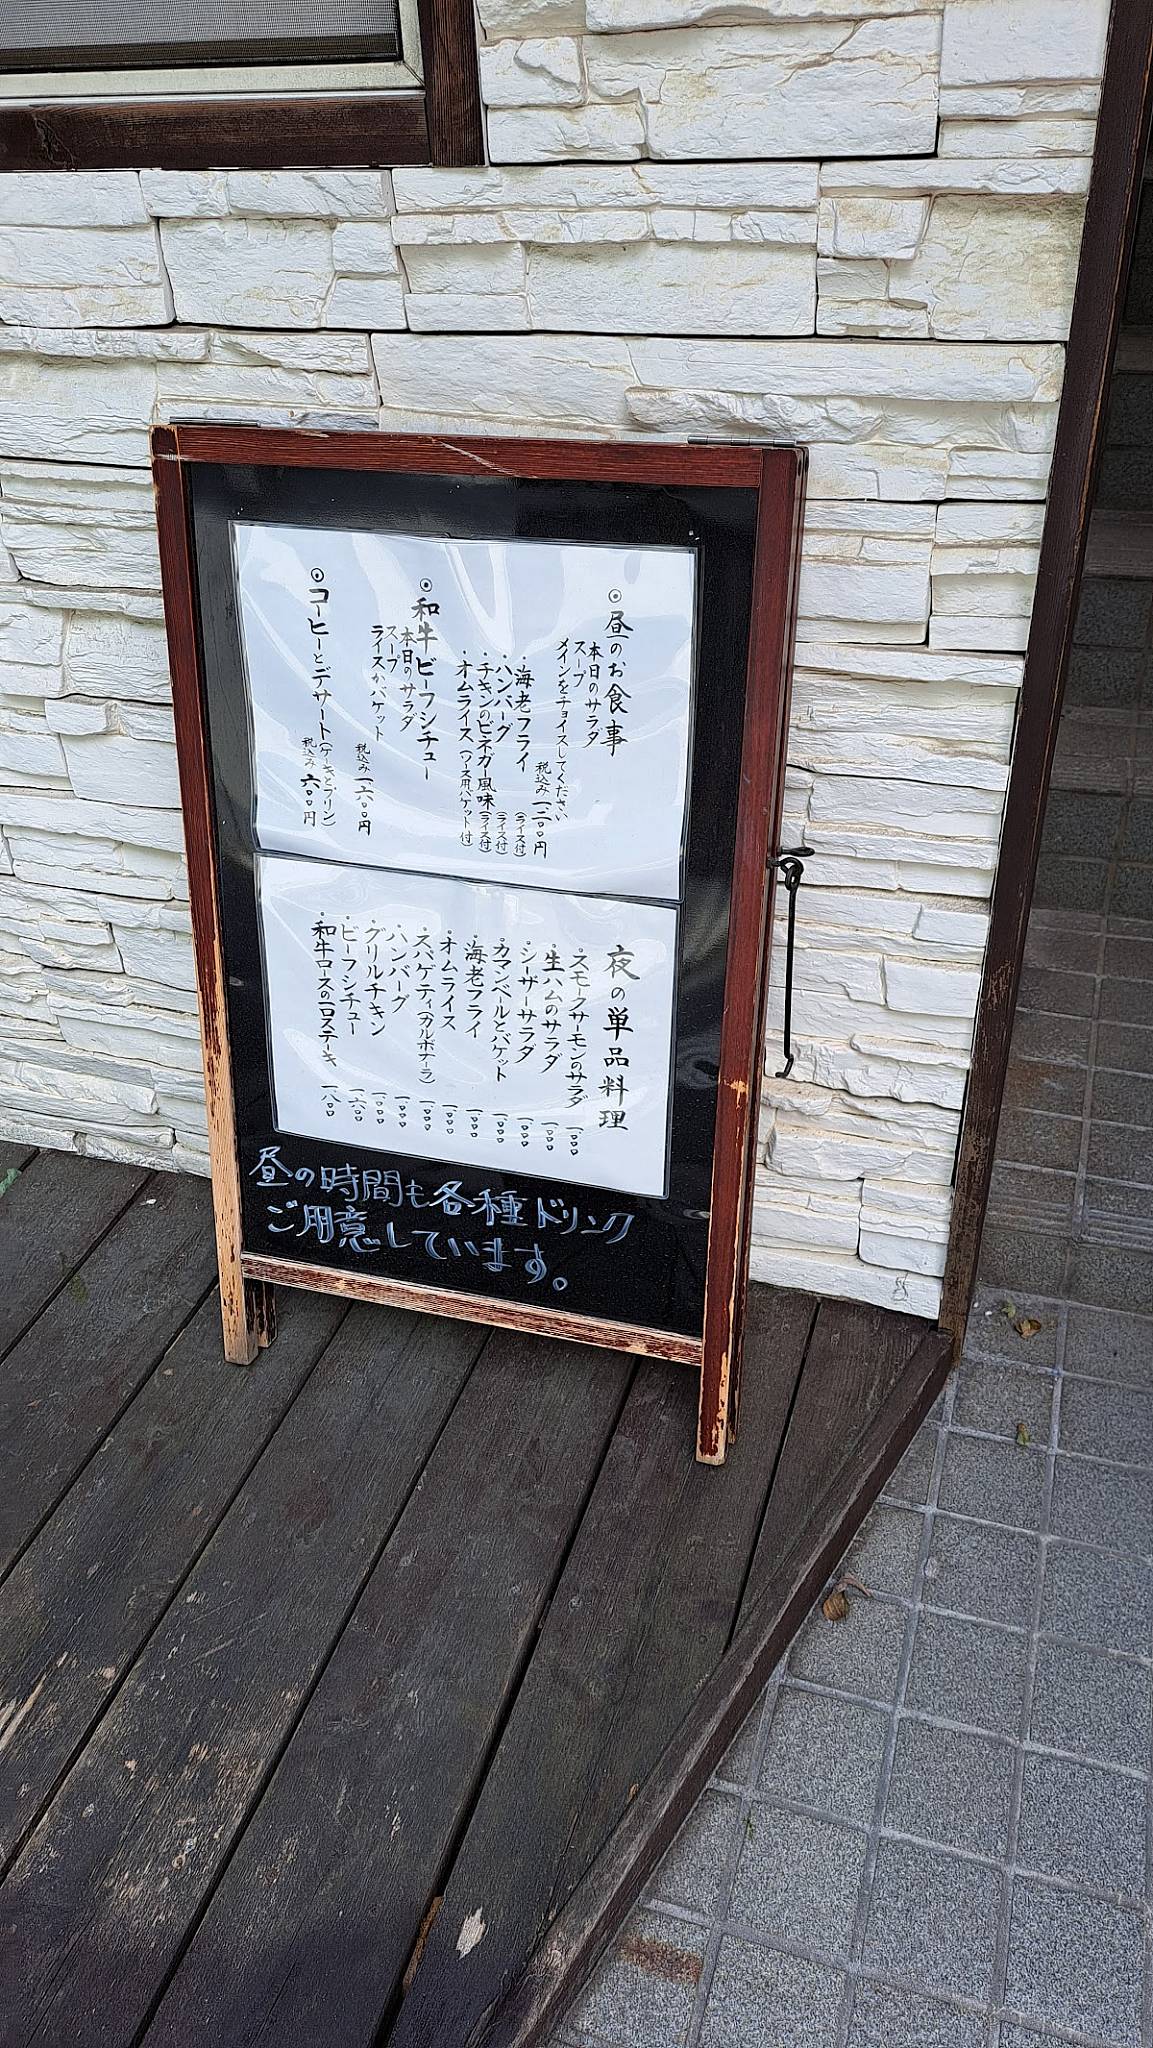 ◉昼のお食事
本日のサラダ
スープ
メインをチョイスしてください
税込み 一二〇〇円
・海老フライ(ライス付)
・ハンバーグ(ライス付)
・チキンのビネガー風味(ライス付)
・オムライス(ソース用バケット付)
◉和牛ビーフシチュー
本日のサラダ
スープ
ライスかバケット
税込み 一六〇〇円
◉コーヒーとデザート(ケーキとプリン)
税込み 六〇〇円
夜の単品料理
・スモークサーモンのサラダ 一〇〇〇
・生ハムのサラダ 一〇〇〇
・シーザーサラダ 一〇〇〇
・カマンベールとバケット 一〇〇〇
・海老フライ 一〇〇〇
・オムライス 一〇〇〇
・スパゲティ(カルボナーラ) 一〇〇〇
・ハンバーグ 一〇〇〇
・グリルチキン 一〇〇〇
・ビーフシチュー 一六〇〇
・和牛ロースの一口ステーキ 一八〇〇
昼の時間も各種ドリンク
ご用意しています。